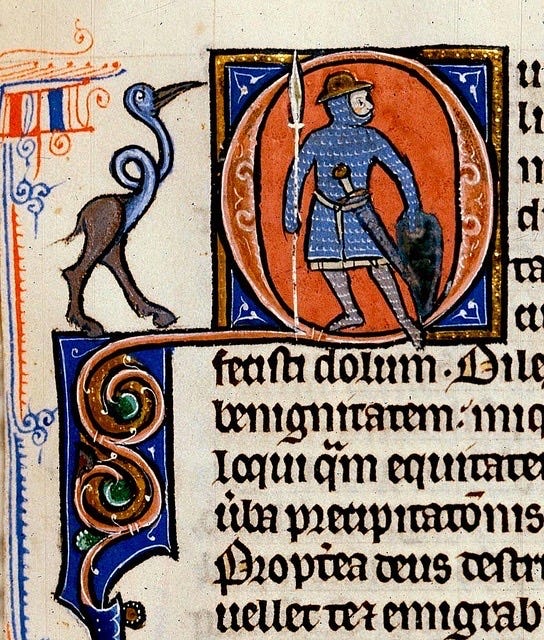 Qu
li
di
ta
cu
fecisti dolum · Dile
benignitatem : iniq
loqui qᷓm equitate
u̓ba precipitatōnis
Propt̓ea deus destr
uellet te ⁊ emigrab